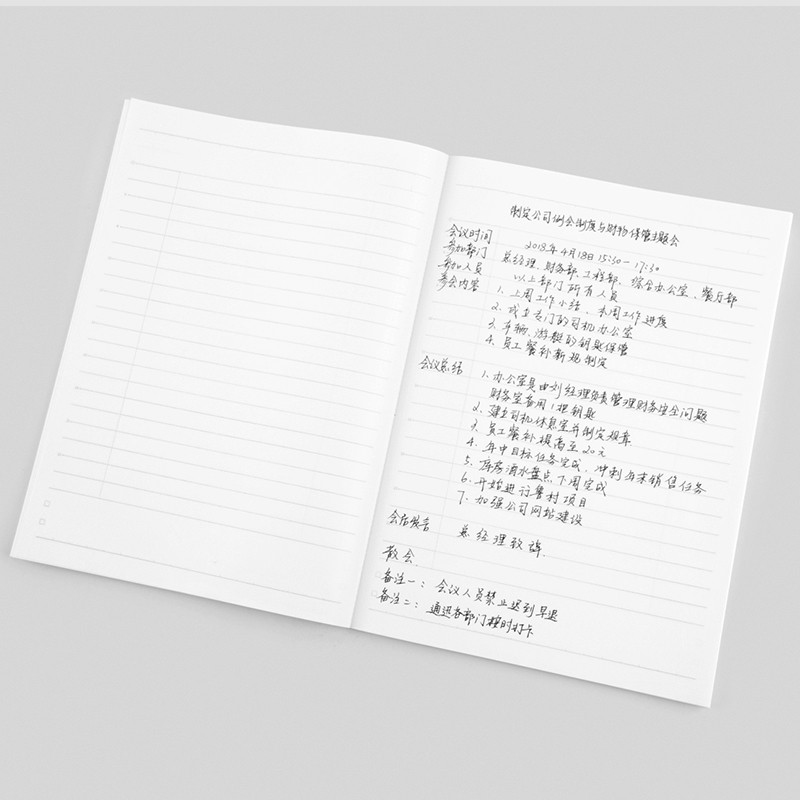 制定公司例会制度与财物保管主题会
会议时间 2018年4月18日 15:30-17:30
参加部门 总经理、财务部、工程部、综合办公室、餐厅部
参加人员 以上部门所有人员
参会内容 1. 上周工作小结，本周工作进度
2. 成立专门的司机办公室
3. 车辆、游艇的钥匙保管
4. 员工餐补新规制定
会议总结 1. 办公室具由刘经理负责管理财务安全问题
财务室备用1把钥匙
2. 建立司机休息室并制定规章
3. 员工餐补提高至20元
4. 年中目标任务完成，冲刺年末销售任务
5. 库房酒水盘点下周完成
6. 开始进行售村项目
7. 加强公司网站建设
会后发言 总经理致辞.
散会.
备注一：会议人员禁止迟到早退
备注二：通道各部门按时打卡